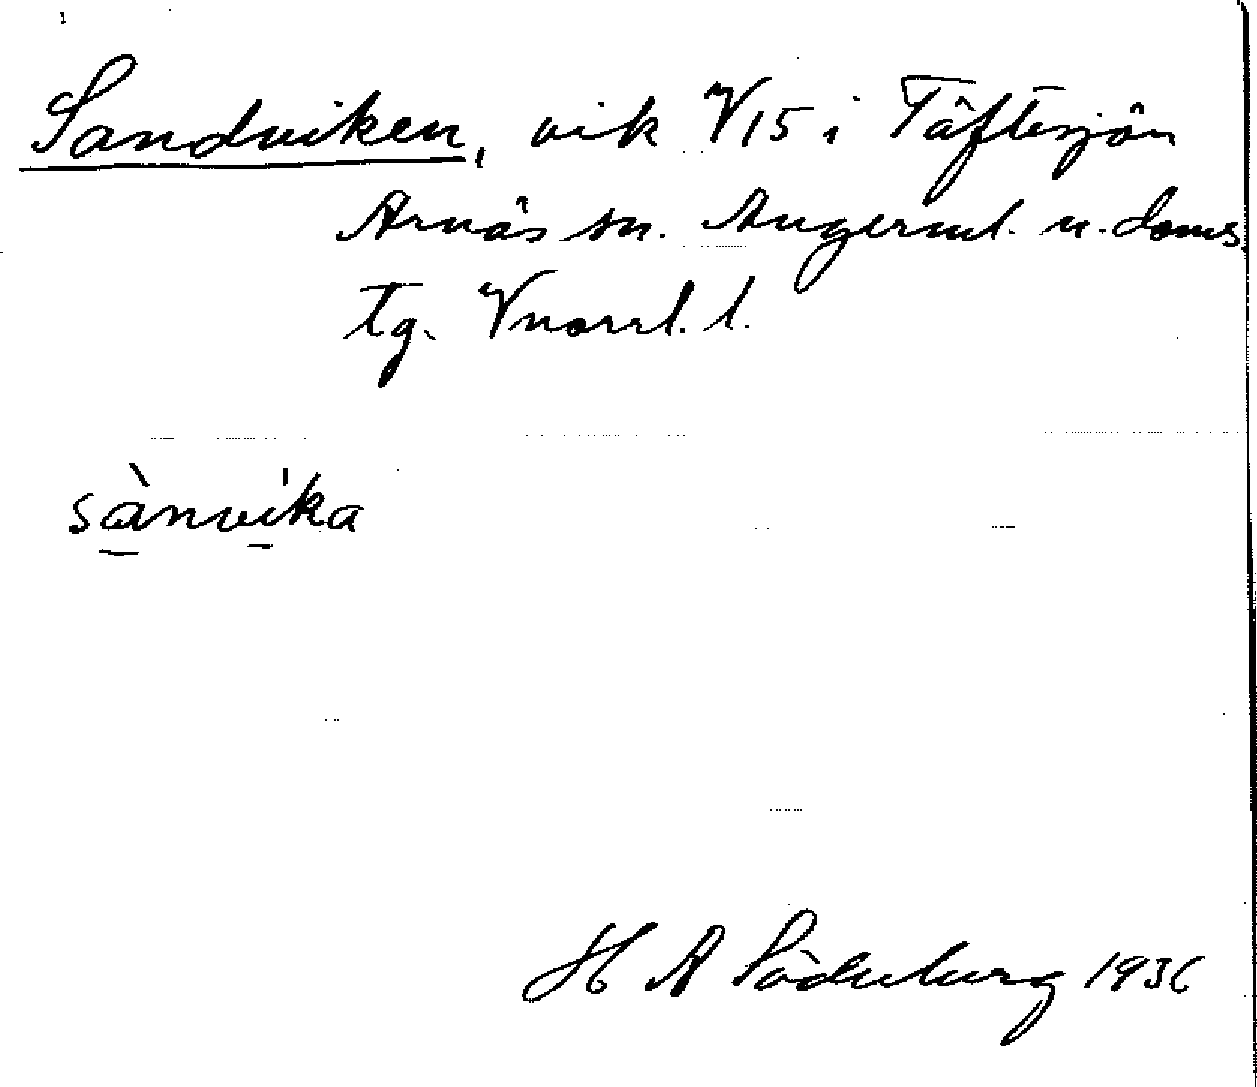 Sandviken, vik V15 i Täftesjön
Arnäs sn. Ångerml. n. doms
tg. Vnorrl. l.
sànvíka
H A Söderberg 1936